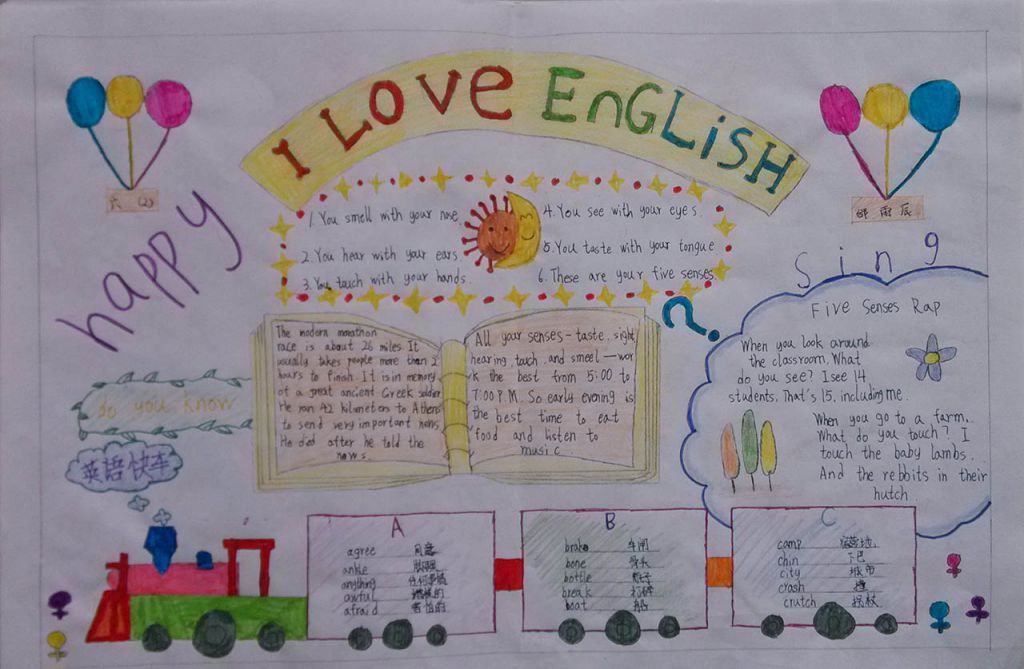 I LOVE EnGLiSH
六 (2)
邰雨辰
happy
1. You smell with your nose
2. You hear with your ears
3. You tauch with your hands.
4. You see with your eyes.
5. You taste with your tongue
6. These are your five senses
?
The modern marathon
race is about 26 miles. It
usually takes people more than 2
hours to finish. It is in memory
of a great ancient Greek soldier
He ran 42 kilometers to Athens
to send very important news
He died after he told the
news.
All your senses - taste, sight
hearing, tauch and smeel — wor
k the best from 5:00 to
7:00 P.M. So early evening is
the best time to eat
food and listen to
music.
Sing
Five Senses Rap
When you look around
the classroom. What
do you see? I see 14
students. That's 15, including me.
When you go to a farm.
What do you touch? I
touch the baby lambs.
And the rebbits in their
hutch
do you know
英語快车
A
agree 同意
ankle 脚踝
anything 任何事情
awful
afraid 害怕的
B
brake 车闸
bone 骨头
bottle 瓶子
break 打碎
boat 船
C
camp 宿营地
chin 下巴
city 城市
crash 撞
crutch 拐杖